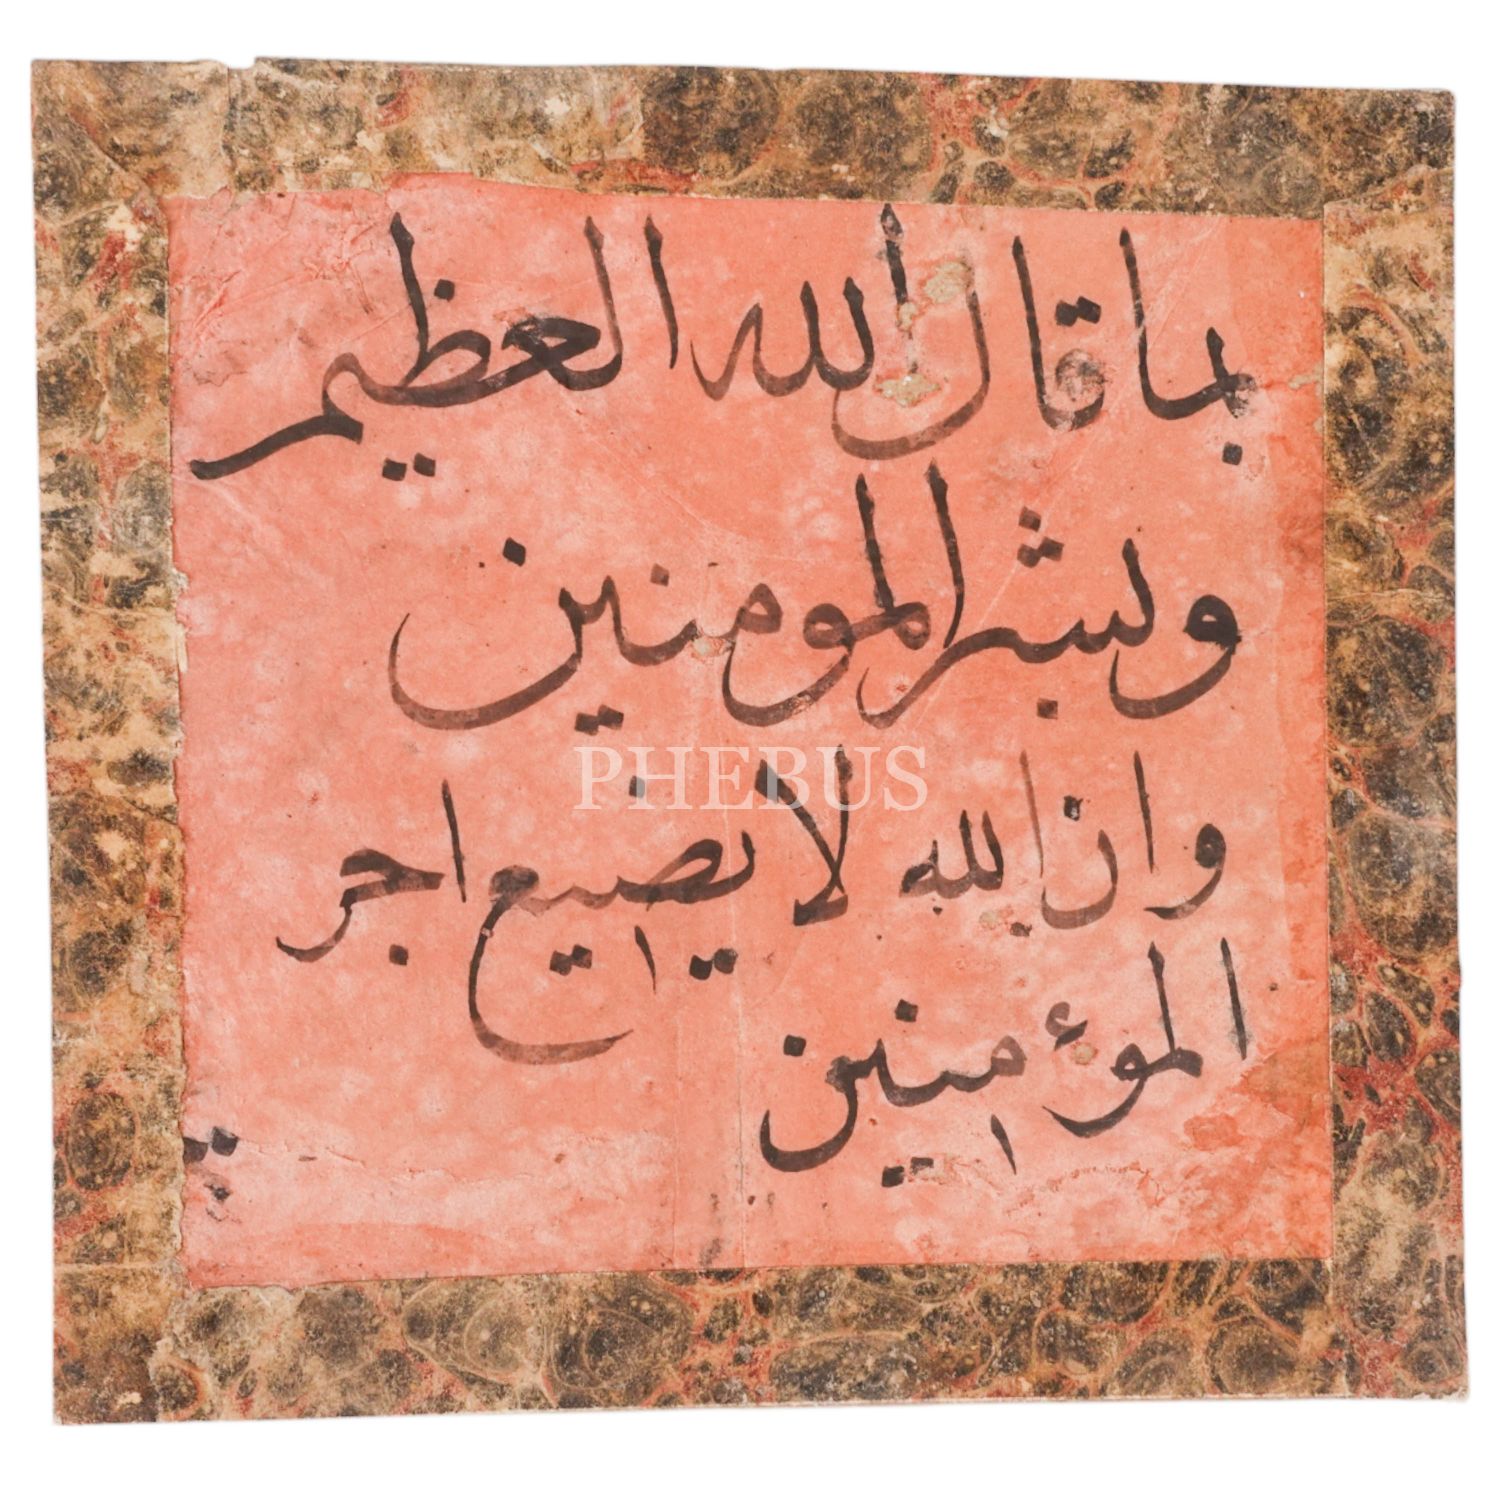 بما قال الله العظيم
وبشر المومنين
PHEBUS
وان الله لا يضيع اجر
المؤمنين